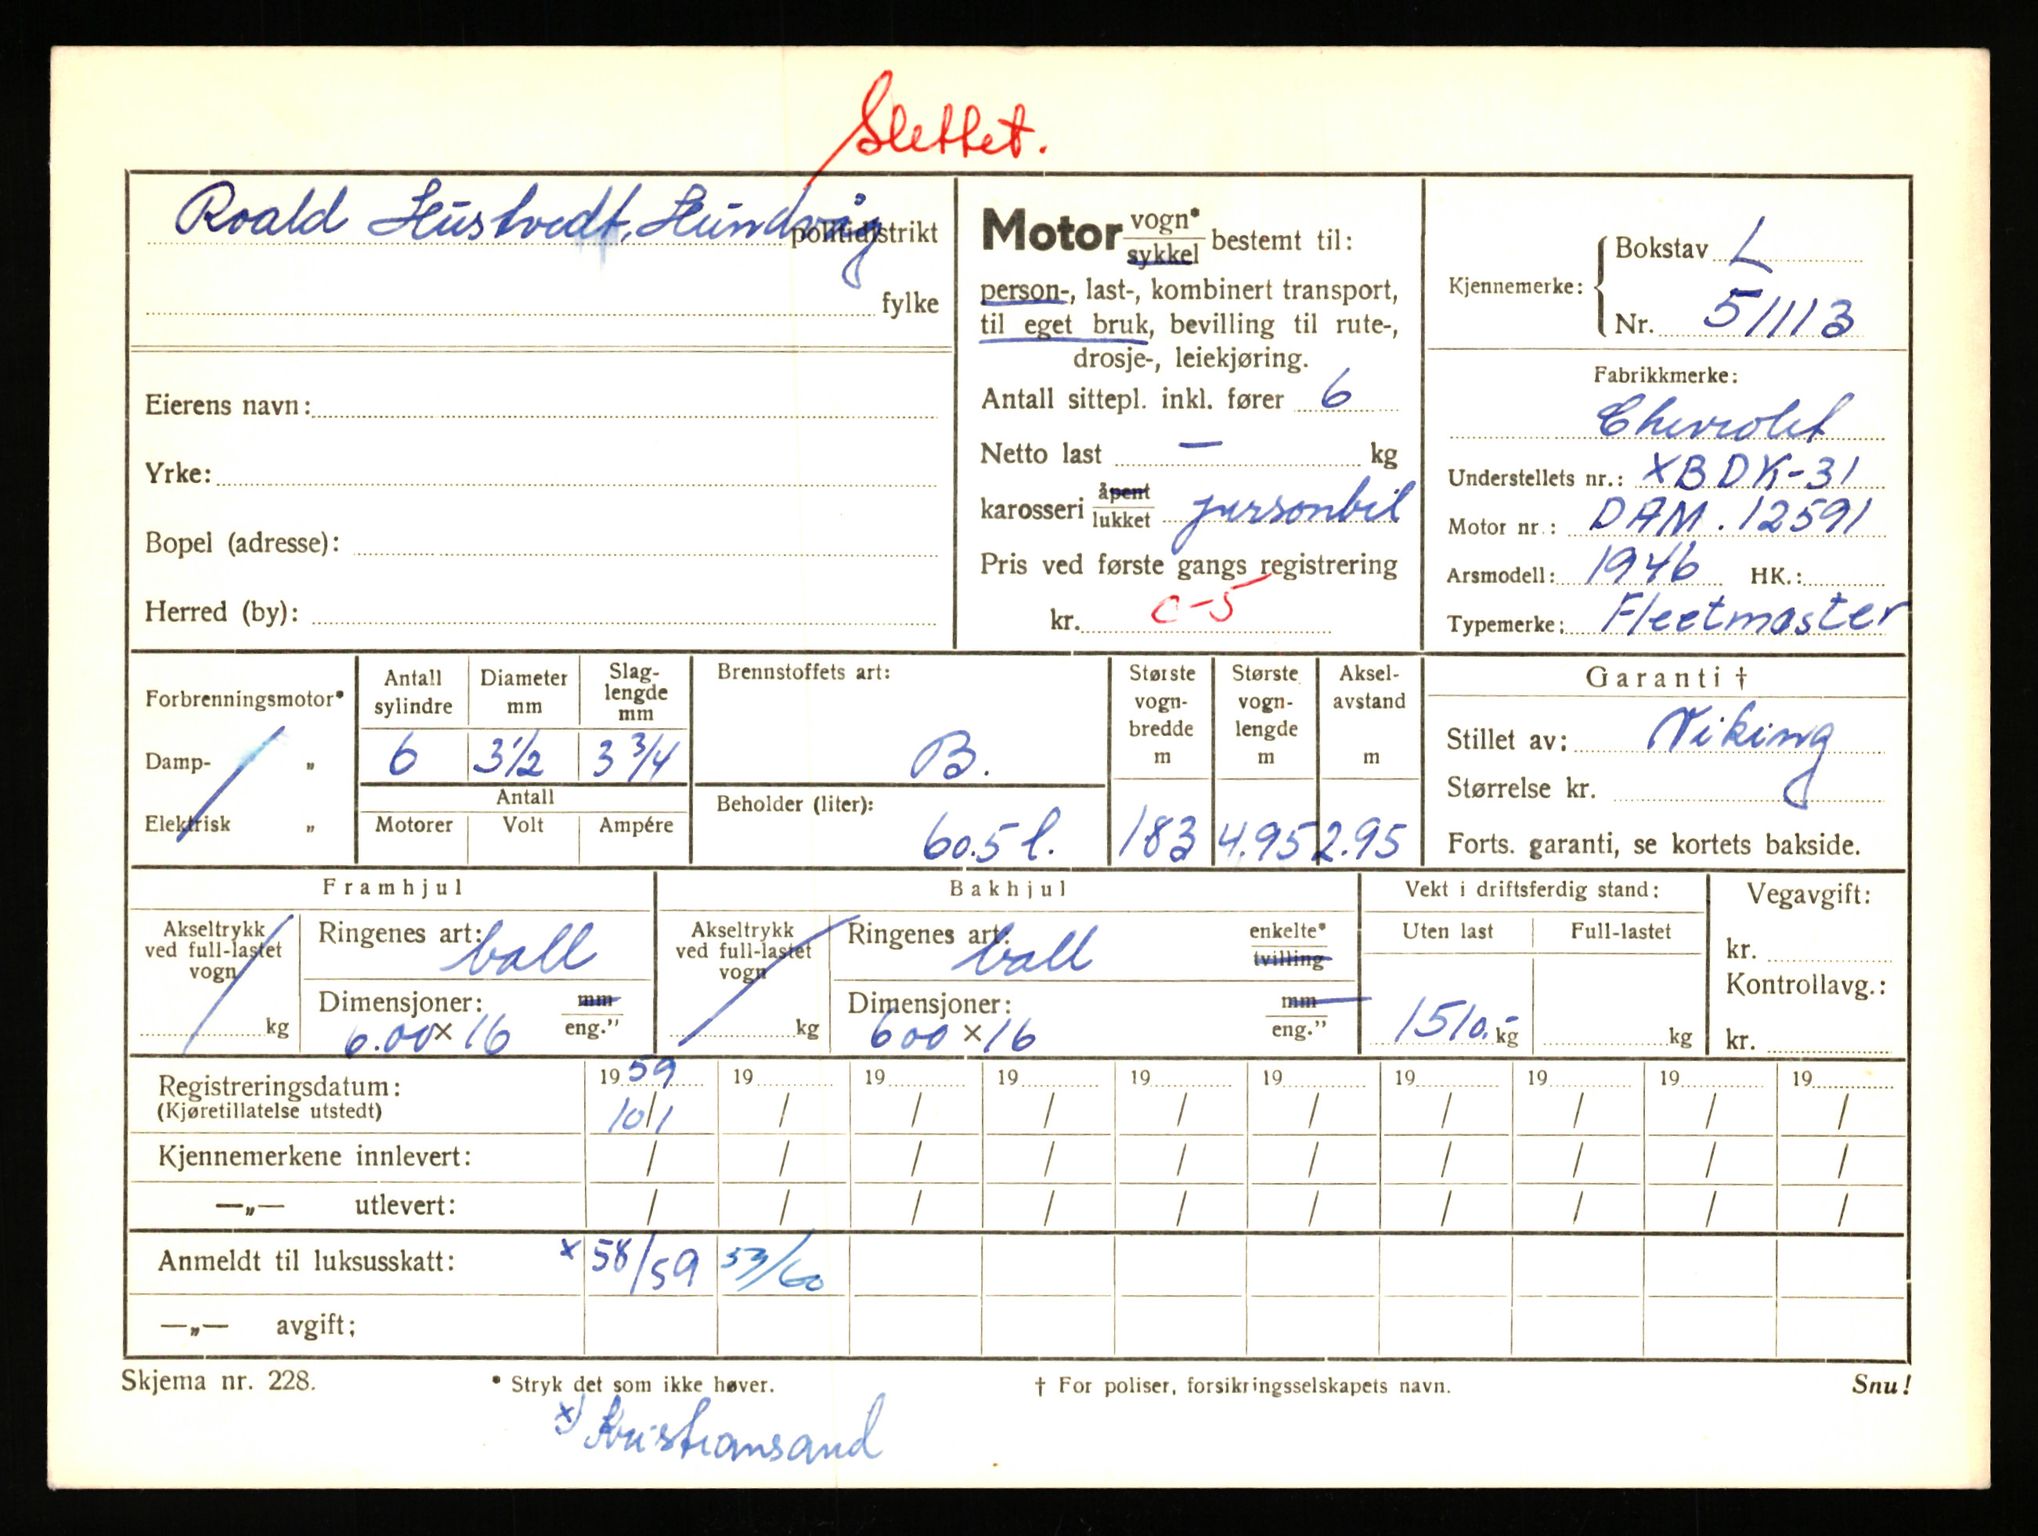 Slettet.
Roald Hustvedt, Hundvåg
politidistrikt
fylke
Eierens navn:
Yrke:
Bopel (adresse):
Herred (by):
Motor vogn* sykkel bestemt til:
person-, last-, kombinert transport,
til eget bruk, bevilling til rute-,
drosje-, leiekjøring.
Antall sittepl. inkl. fører 6
Netto last — kg
karosseri åpent lukket personbil
Pris ved første gangs registrering
kr. c-5
Kjennemerke: Bokstav L
Nr. 51113
Fabrikkmerke:
Chevrolet
Understellets nr.: XBDK-31
Motor nr.: DAM. 12591
Arsmodell: 1946 HK.:
Typemerke: Fleetmaster
Forbrenningsmotor*
Damp- „
Elektrisk „
Antall sylindre Diameter mm Slag-lengde mm
6 3 1/2 3 3/4
Antall
Motorer Volt Ampére
Brennstoffets art:
B.
Beholder (liter):
60.5 l.
Største vogn-bredde m
183
Største vogn-lengde m
4.95
Aksel-avstand m
2.95
Garanti †
Stillet av: Viking
Størrelse kr.
Forts. garanti, se kortets bakside.
Framhjul
Akseltrykk
ved full-lastet
vogn
kg
Ringenes art: ball
Dimensjoner: mm
6.00 × 16 eng."
Bakhjul
Akseltrykk
ved full-lastet
vogn
kg
Ringenes art: ball enkelte* tvilling
Dimensjoner: mm
600 × 16 eng."
Vekt i driftsferdig stand:
Uten last Full-lastet
1510,- kg kg
Vegavgift:
kr.
Kontrollavg.:
kr.
Registreringsdatum: 1959 19 19 19 19 19 19 19 19 19
(Kjøretillatelse utstedt) 10/1 / / / / / / / / /
Kjennemerkene innlevert: / / / / / / / / / /
—„— utlevert: / / / / / / / / / /
Anmeldt til luksusskatt: x 58/59 53/60
—„— avgift;
Skjema nr. 228. * Stryk det som ikke høver. † For poliser, forsikringsselskapets navn. Snu!
x) Kristiansand